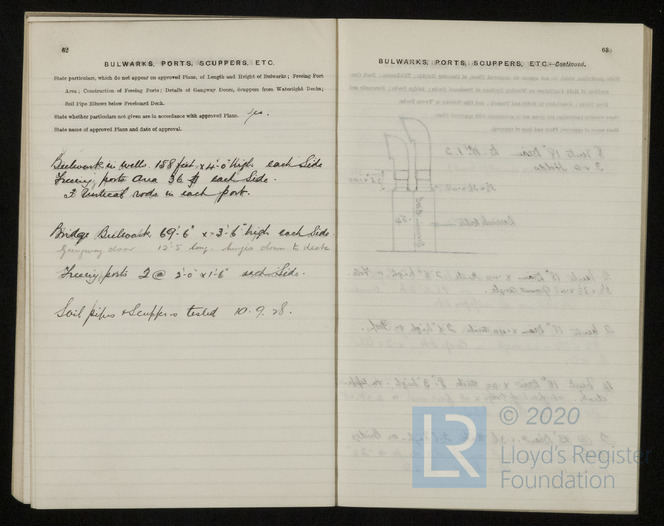 62
BULWARKS, PORTS, SCUPPERS, ETC.
State particulars, which do not appear on approved Plans, of Length and Height of Bulwarks; Freeing Port
Area; Construction of Freeing Ports; Details of Gangway Doors, Scuppers from Watertight Decks;
Soil Pipe Elbows below Freeboard Deck.
State whether particulars not given are in accordance with approved Plans. Yes.
State name of approved Plans and date of approval.
Bulwark in wells 158 feet x 4'-0" high each Side
Freeing ports area 36 each Side.
Vertical rods in each port.
Bridge Bulwark 69'-6" x 3'-6" high each Side
Gangway door 12'-5 long hinges down to deck
Freeing ports 2 @ 2'-0" x 1'-6" each Side.
Soil pipes & Scuppers tested 10.9.28.
63
BULWARKS, PORTS, SCUPPERS, ETC.—Continued.
LR
© 2020
Lloyd's Register
Foundation